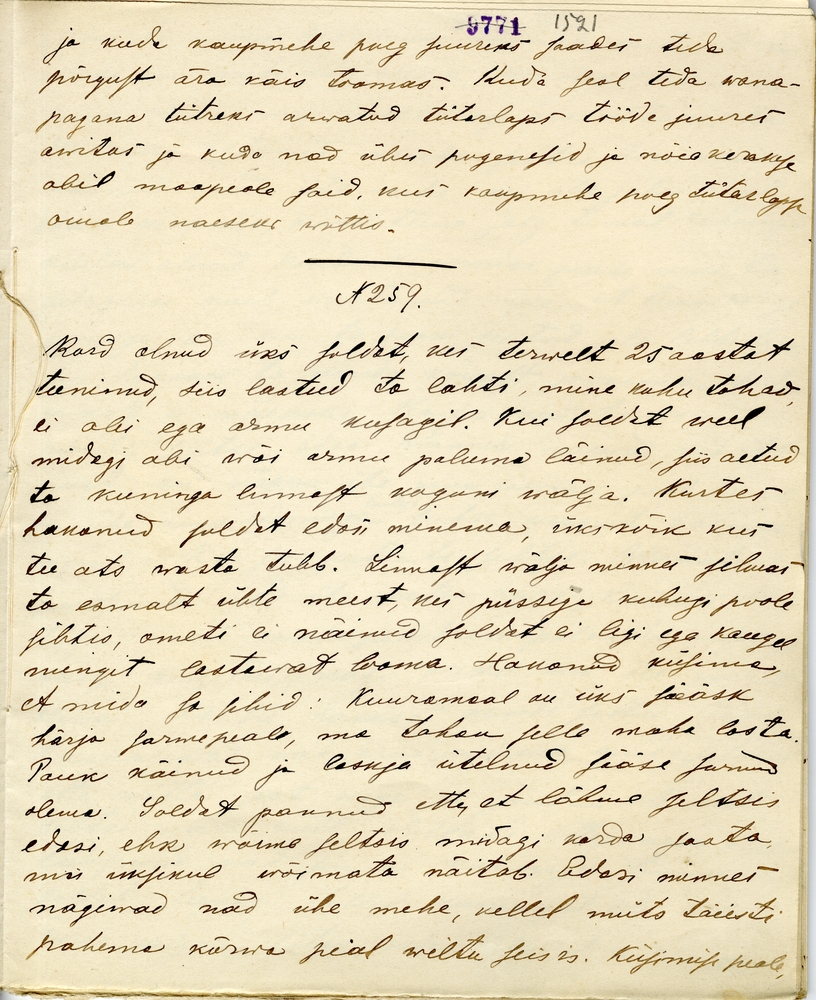 9771 1591
ja kuda kaupmehe poeg suureks saades teda
põrgust ära käis toomas. Kuda seal teda wana-
pagana tütreks arwatud tütarlaps tööde juures
awitas ja kuda nad ühes pogenesid ja nõiakerakese
abil maapeale said, kus kaupmehe poeg tütarlapse
omale naeseks wõttis.
N 259.
Kord olnud üks soldat, kes terwelt 25 aastat
teeninud, siis lastud ta lahti, mine kuhu tahad,
ei abi ega armu kusagil. Kui soldat weel
midagi abi wõi armu paluma läinud, siis aetud
ta kuninga linnast koguni wälja. Kurtes
hakanud soldat edasi minema, ükskõik kus
tee ots wasta tuleb. Linnast wälja minnes silmas
ta esmalt ühte meest, kes püssiga kuhugi poole
sihtis, ometi ei näinud soldat ei ligi ega kaugel
mingit lastawat looma. Hakanud küsima,
et mida sa sihid: Kuuramaal on üks sääsk
härja sarwe peale, ma tahan selle maha lasta.
Pauk käinud ja laskja ütelnud sääse surnud
olema. Soldat pannud ette, et lähme seltsis
edasi, ehk wõime seltsis midagi korda saata,
mis üksikul wõimata näitab. Edasi minnes
nägiwad nad ühe mehe, kellel müts täiesti
pahema kõrwa peal wiltu seisis. Küsimise peale,